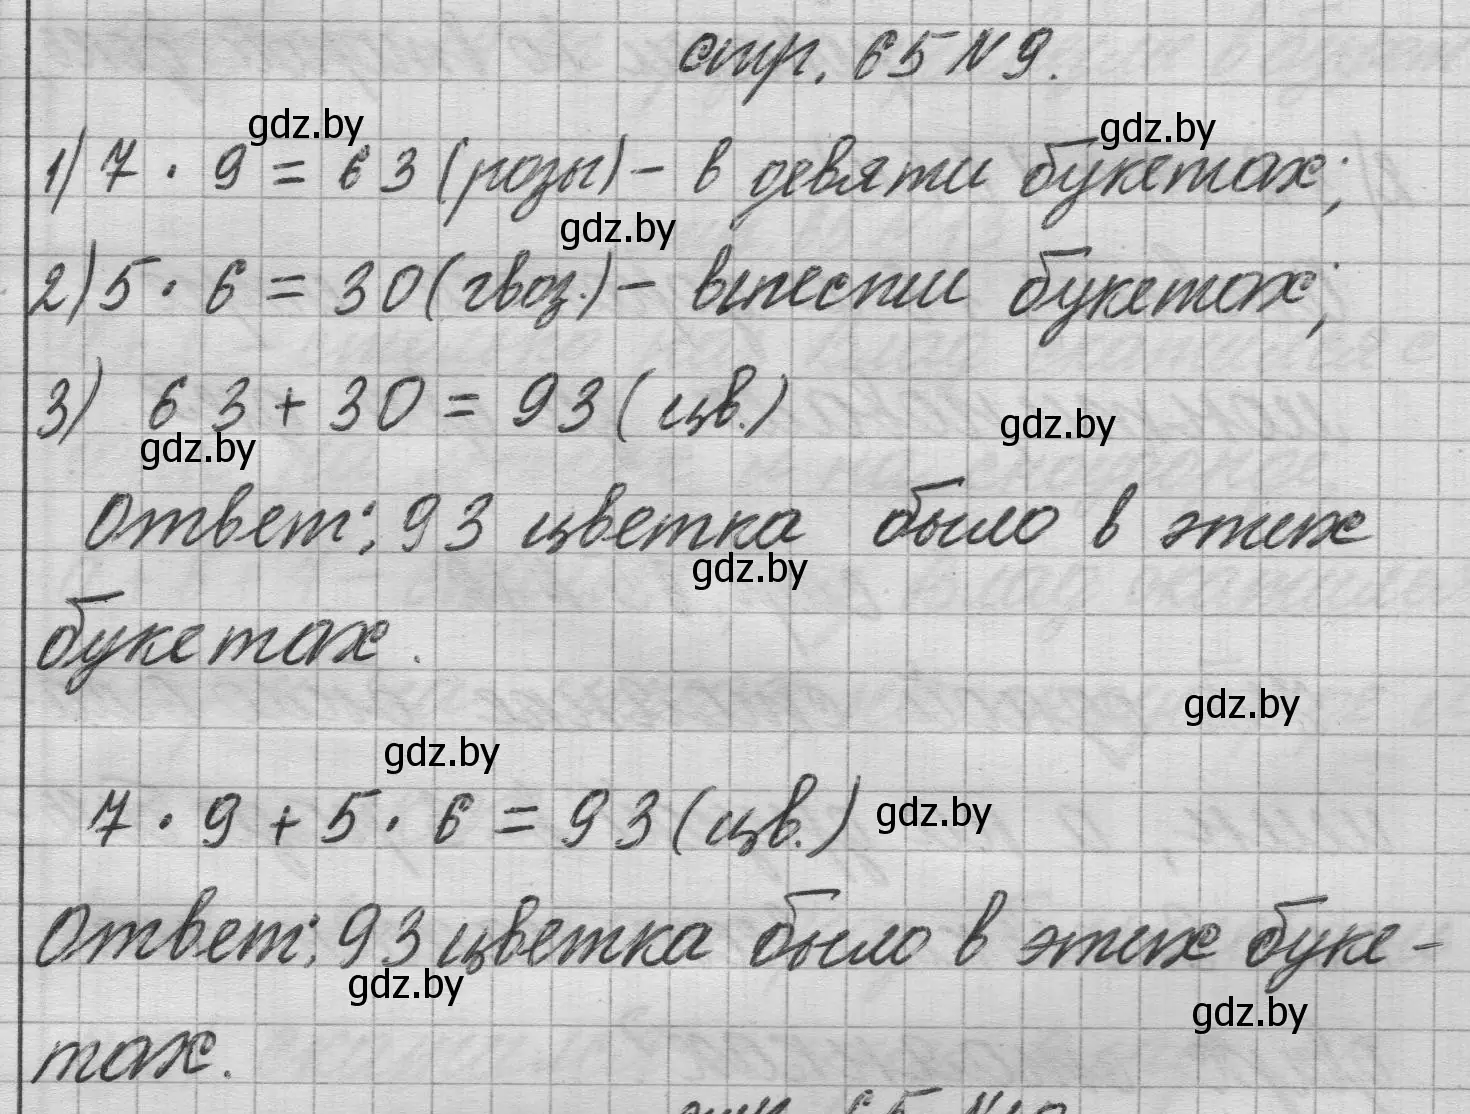 стр. 65 N 9.
gdz.by
gdz.by
1) 7 · 9 = 63 (розы) – в девяти букетах;
gdz.by
2) 5 · 6 = 30 (гвоз.) – в шести букетах;
3) 63 + 30 = 93 (цв.)
gdz.by
gdz.by
Ответ: 93 цветка было в этих
gdz.by
букетах.
gdz.by
gdz.by
7 · 9 + 5 · 6 = 93 (цв.)
gdz.by
Ответ: 93 цветка было в этих буке-
gdz.by
gdz.by
тах.